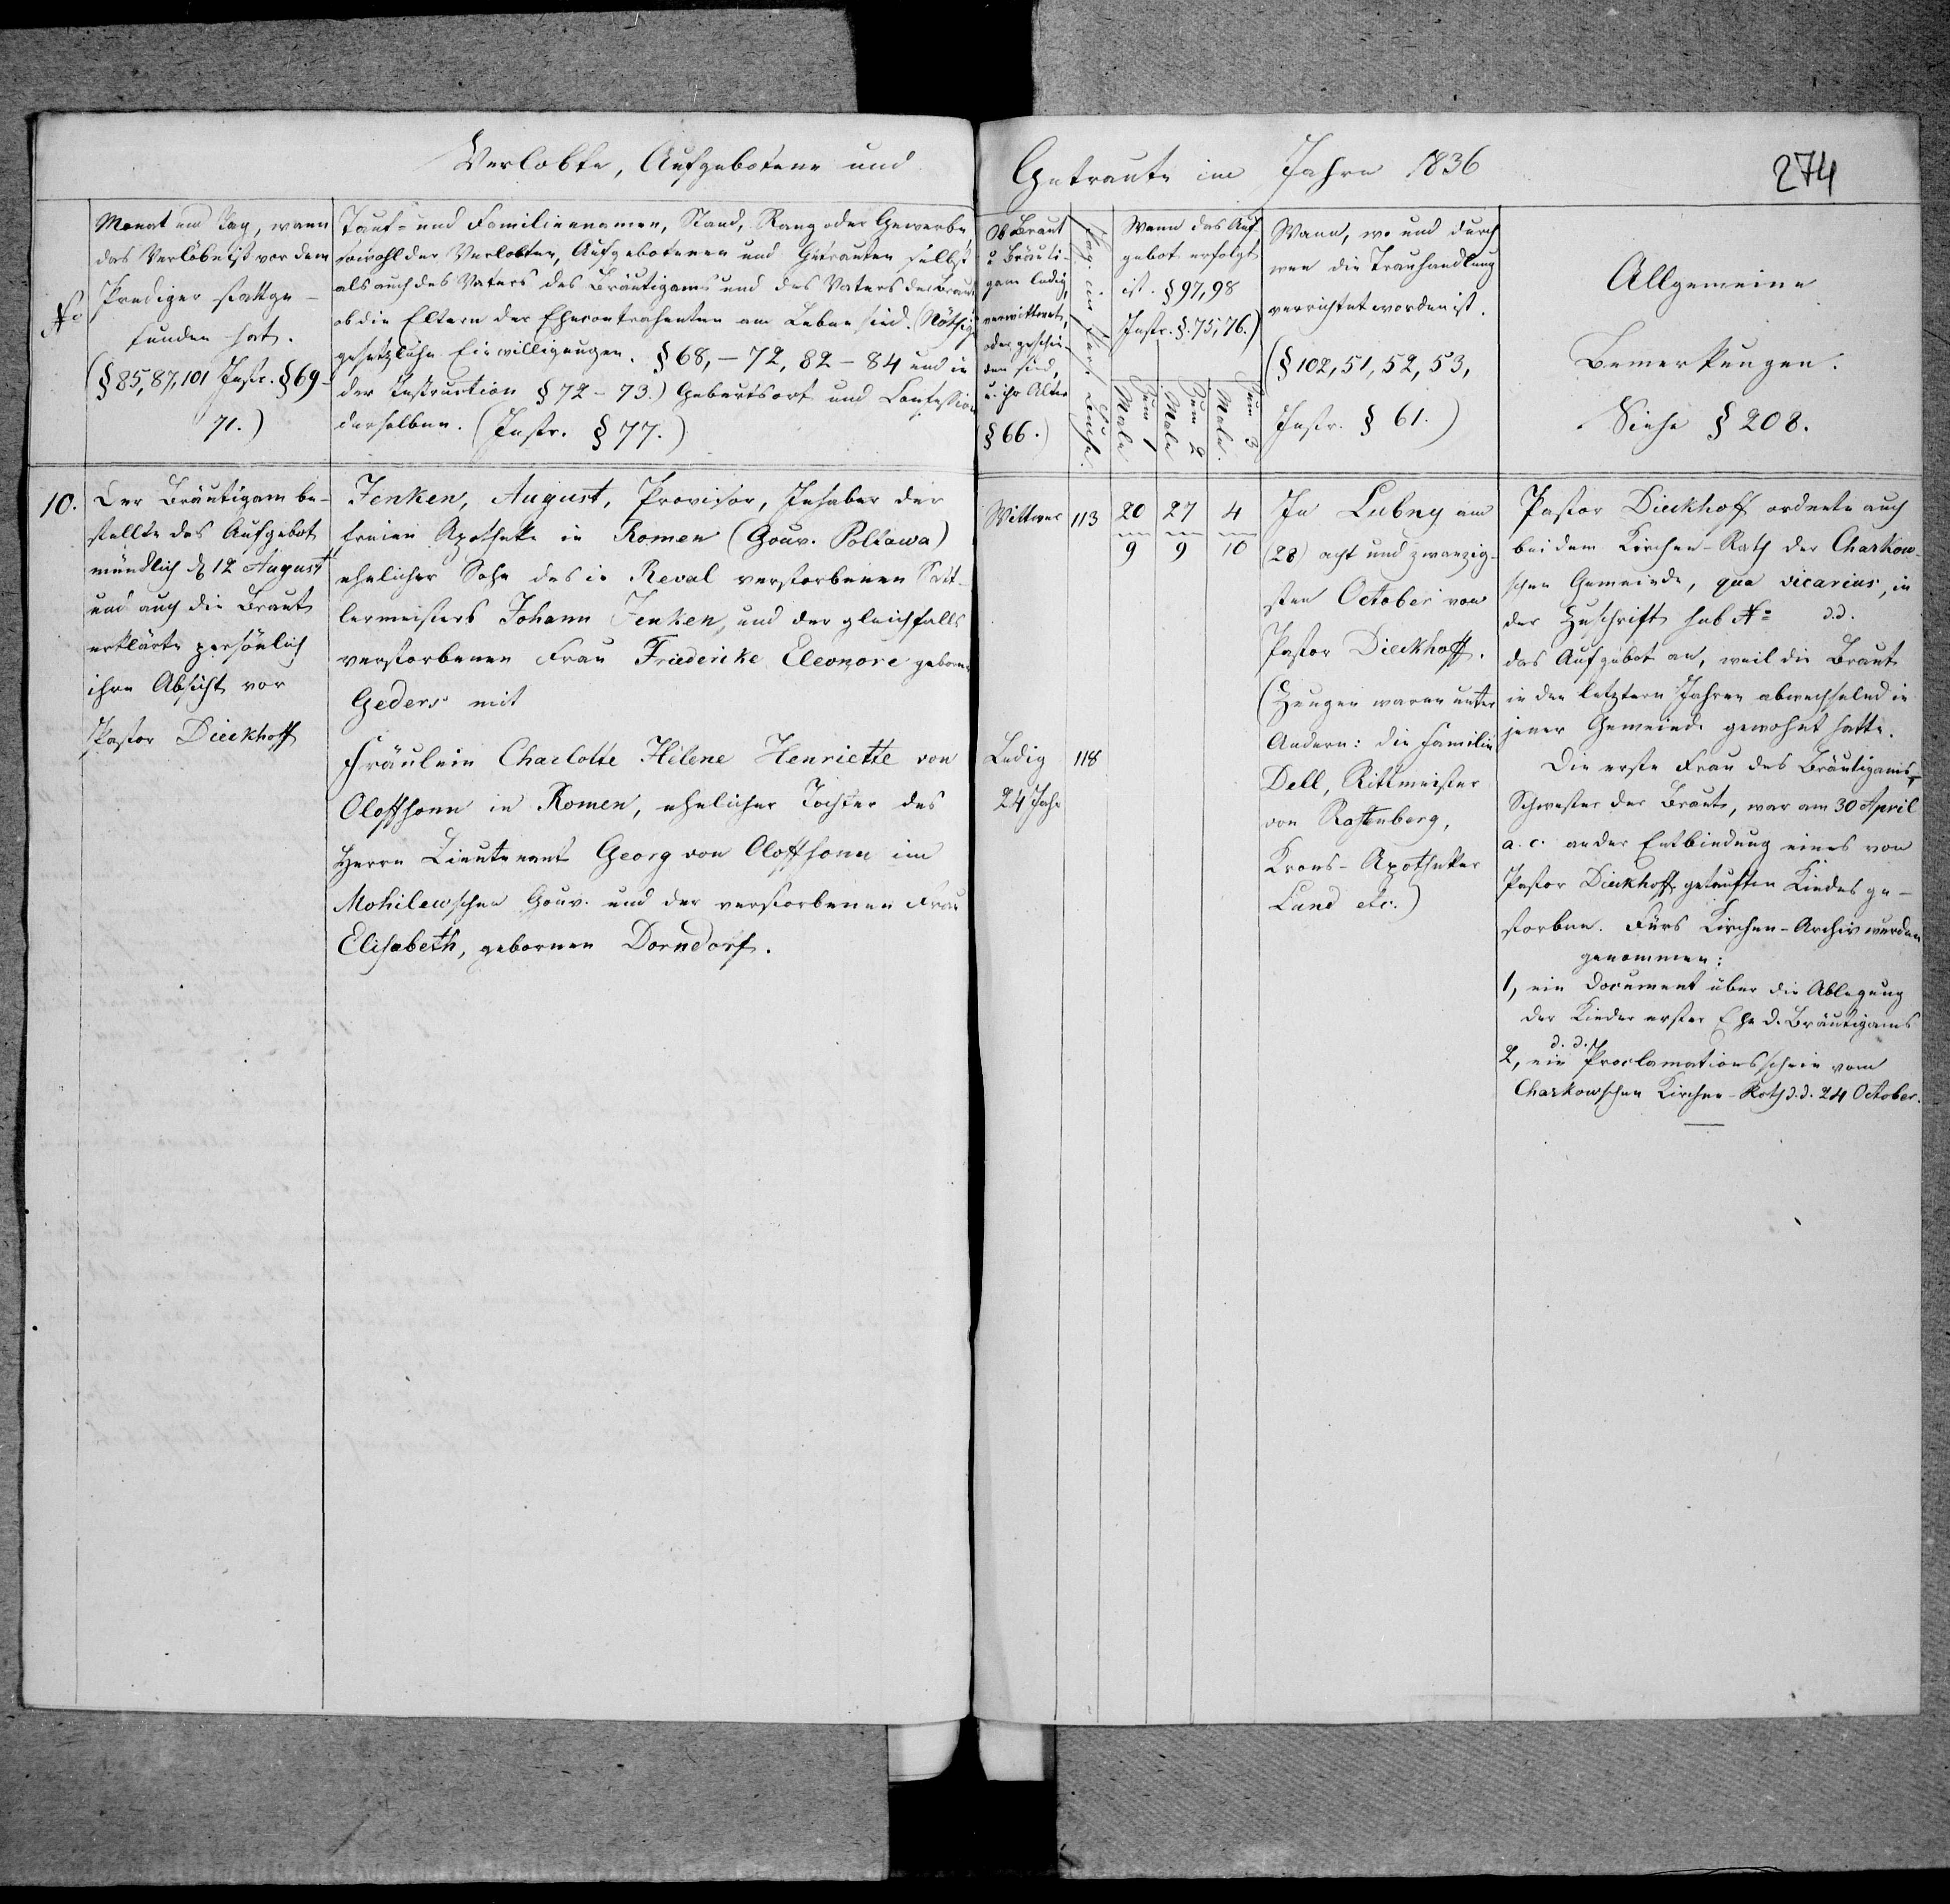 Verlobte, Aufgebotene und
Getraute im Jahre 1836
274
No
Monat und Tag, wann
das Verlöbniß vor dem
Prediger stattge-
funden hat.
(§ 85, 87, 101 Instr. § 69-
71.)
Tauf- und Familiennamen, Stand, Rang oder Gewerbe,
sowohl der Verlobten, Aufgebotenen und Getrauten selbst
als auch des Vaters des Bräutigams und des Vaters der Braut
ob die Eltern der Ehecontrahenten am Leben sind. (Nöthige
gesetzliche Einwilligungen. § 68, - 72, 82 - 84 und in
der Instruction § 72 - 73.) Geburtsort und Confession
derselben. (Instr. § 77.)
Ob Braut
u Bräuti-
gam ledig,
verwittwet,
oder geschie-
den sind,
u. ihr Alter
§ 66.)
Wann das Auf-
gebot erfolgt
ist. § 97, 98
Instr. §. 75, 76.)
Zum 1
Male
Zum 2
Male
Zum 3
Male.
Wann, wo und durch
wen die Trauhandlung
verrichtet worden ist.
(§ 102, 51, 52, 53,
Instr. § 61.)
Allgemeine
Bemerkungen.
Siehe § 208.
10.
Der Bräutigam be-
stellte das Aufgebot
mündlich d. 12 August
und auch die Braut
erklärte persönlich
ihre Absicht vor
Pastor Dieckhoff
Jenken, August, Provisor, Inhaber der
freien Apotheke in Romen (Gouv. Poltawa)
ehelicher Sohn des in Reval verstorbenen Satt-
lermeisters Johann Jenken, und der gleichfalls
verstorbenen Frau Friederike Eleonore geborne
Geders mit
Fräulein Charlotte Hélene Henriette von
Oloffsonn in Romen, ehelicher Tochter des
Herrn Lieutenant Georg von Oloffsonn im
Mohilewschen Gouv. und der verstorbenen Frau
Elisabeth, gebornen Dorndorf.
Wittwer
113
20
9
27
9
4
10
Ledig
24 Jahr
118
In Lubny am
(28) acht und zwanzig-
sten October von
Pastor Dieckhoff.
(Zeugen waren unter
Andern: die Familie
Dell, Rittmeister
von
Krons-Apotheker
Land etc.)
Pastor Dieckhoff ordnete auch
bei dem Kirchen-Rath der Charkow-
schen Gemeinde, qua vicarius, in
der Zuschrift sub No d.d.
das Aufgebot an, weil die Braut
in den letztern Jahren abwechselnd in
jener Gemeinde gewohnt hatte.
Die erste Frau des Bräutigams,
Schwester der Braut, war am 30 April
a. c. an der Entbindung eines von
Pastor Dieckhoff getauften Kindes ge-
storben. Fürs Kirchen-Archiv wurden
genommen:
1, ein Document über die Ablegung
der Kinder erster Ehe d. Bräutigams
d. d.
2, ein Proclamationsschein vom
Charkowschen Kirchen-Rath d. d. 24 October.